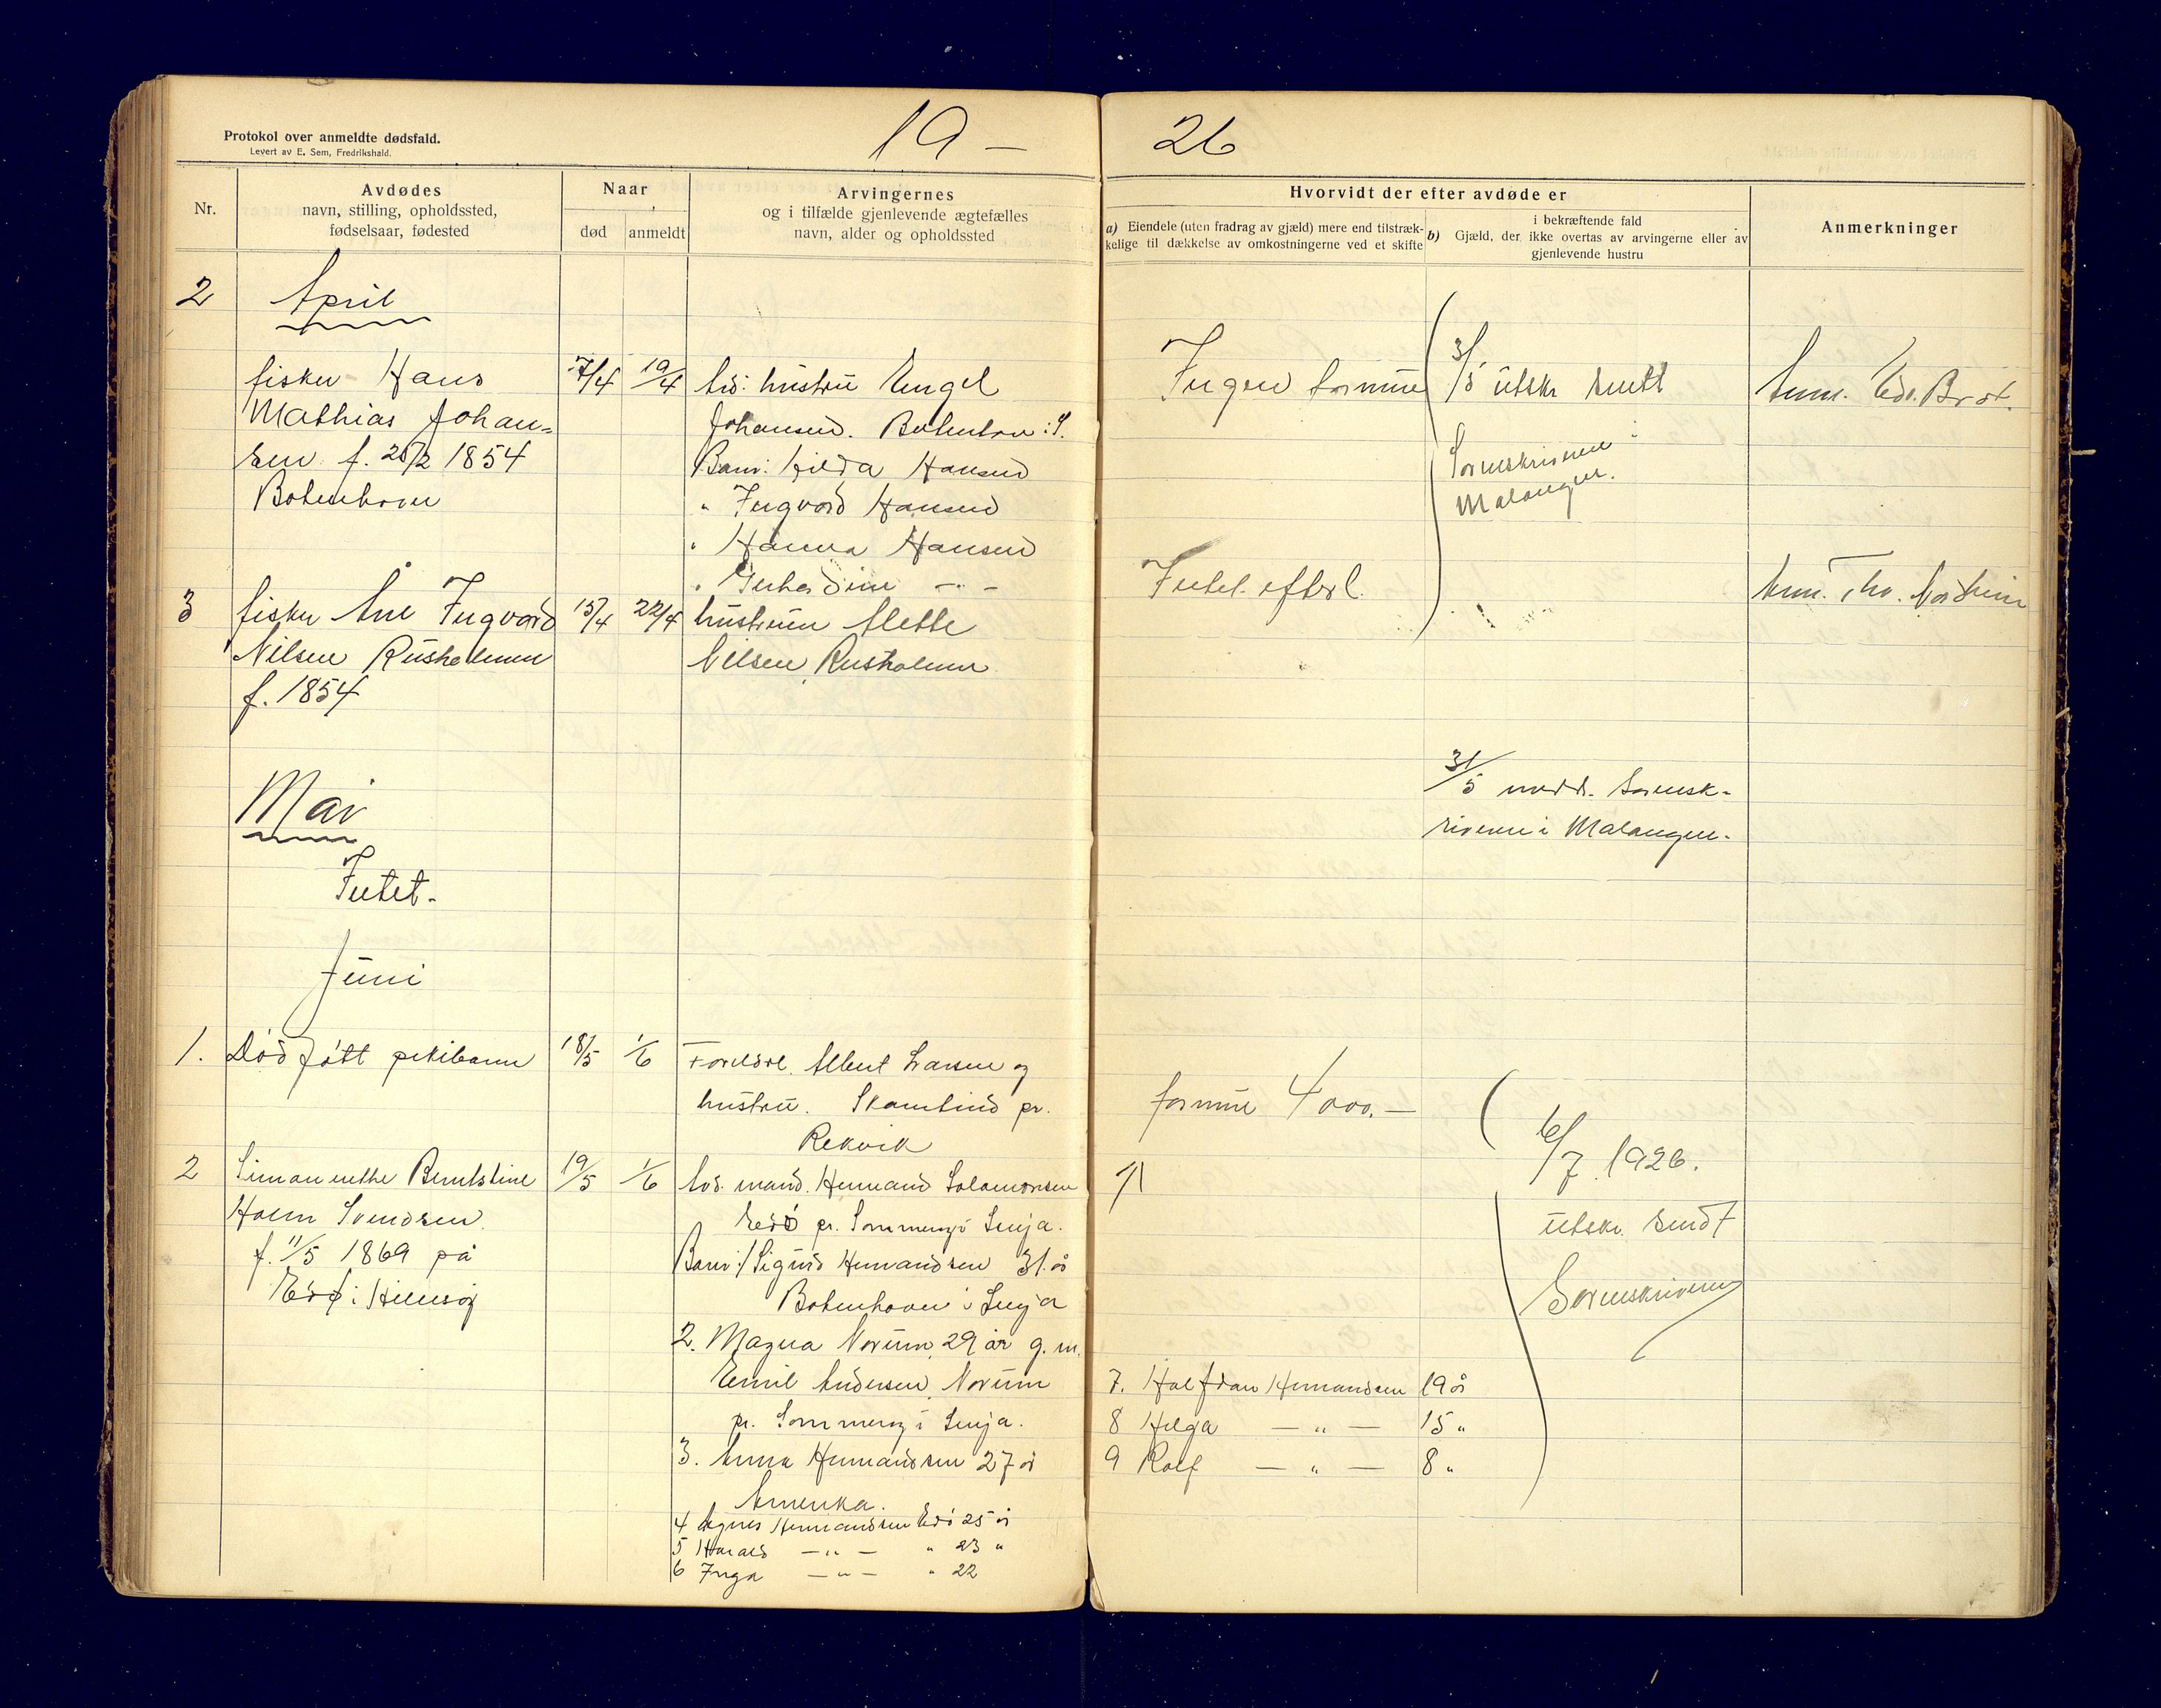 Protokol over anmeldte dødsfald.
Levert av E. Sem, Fredrikshald.
19 —
26
Nr.
Avdødes
navn, stilling, opholdssted,
fødselsaar, fødested
Naar
død
anmeldt
Arvingernes
og i tilfælde gjenlevende ægtefælles
navn, alder og opholdssted
Hvorvidt der efter avdøde er
a) Eiendele (uten fradrag av gjæld) mere end tilstræk-
kelige til dækkelse av omkostningerne ved et skifte
i bekræftende fald
b) Gjæld, der ikke overtas av arvingerne eller av
gjenlevende hustru
Anmerkninger
2 April
fisker Hans 7/4 19/4 hustru Engel
Mathias Johan=
sen f. 1854
Botnhavn
Johansen.
Barn: Hilda Hansen
" Ingvard Hansen
" Hanna Hansen
"
Ingen formue
utskr sendt
Sorenskriveren i
Malangen.
Anm.
3 fisker Ingvard 15/4 22/4 hustruen Mette
Nilsen Rusholmen Nilsen, Rusholmen
f. 1854
Intet efterl.
Anm.
Mai
Intet.
31/5 medd. Sorensk-
riveren i Malangen.
Juni
1. Død født pikebarn 18/5 1/6 Foreldre. Albert Larsen og
hustru. pr.
Rekvik
formue 4000.—
6/7 1926.
utskr. sendt
Sorenskriveren
2 Simonnette Berntstine 19/5 1/6 mand. Hermand Salamonsen
Holm Svendsen.
f. 11/5 1869 på
Edø i Hillesøy
Edø pr. Sommerøy i Senja.
Barn: 1 Sigurd Hermandsen 31 år
Botnhavn i Senja
2. Magna Norum, 29 år g. m.
Emil Andersen, Norum
pr. Sommerøy i Senja.
3. Anna Hermandsen 27 år
Amerika.
4 Agnes Hermandsen Edø 25 år
5 Harald — " — " 23 "
6 Inga — " — " 22
7. Halfdan Hermandsen 19 år
8 Helga — " — 15 "
9 Rolf — " — 8 "